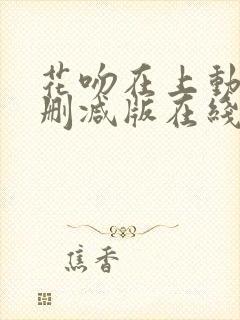 花吻在上動
删减版在綫
焦香